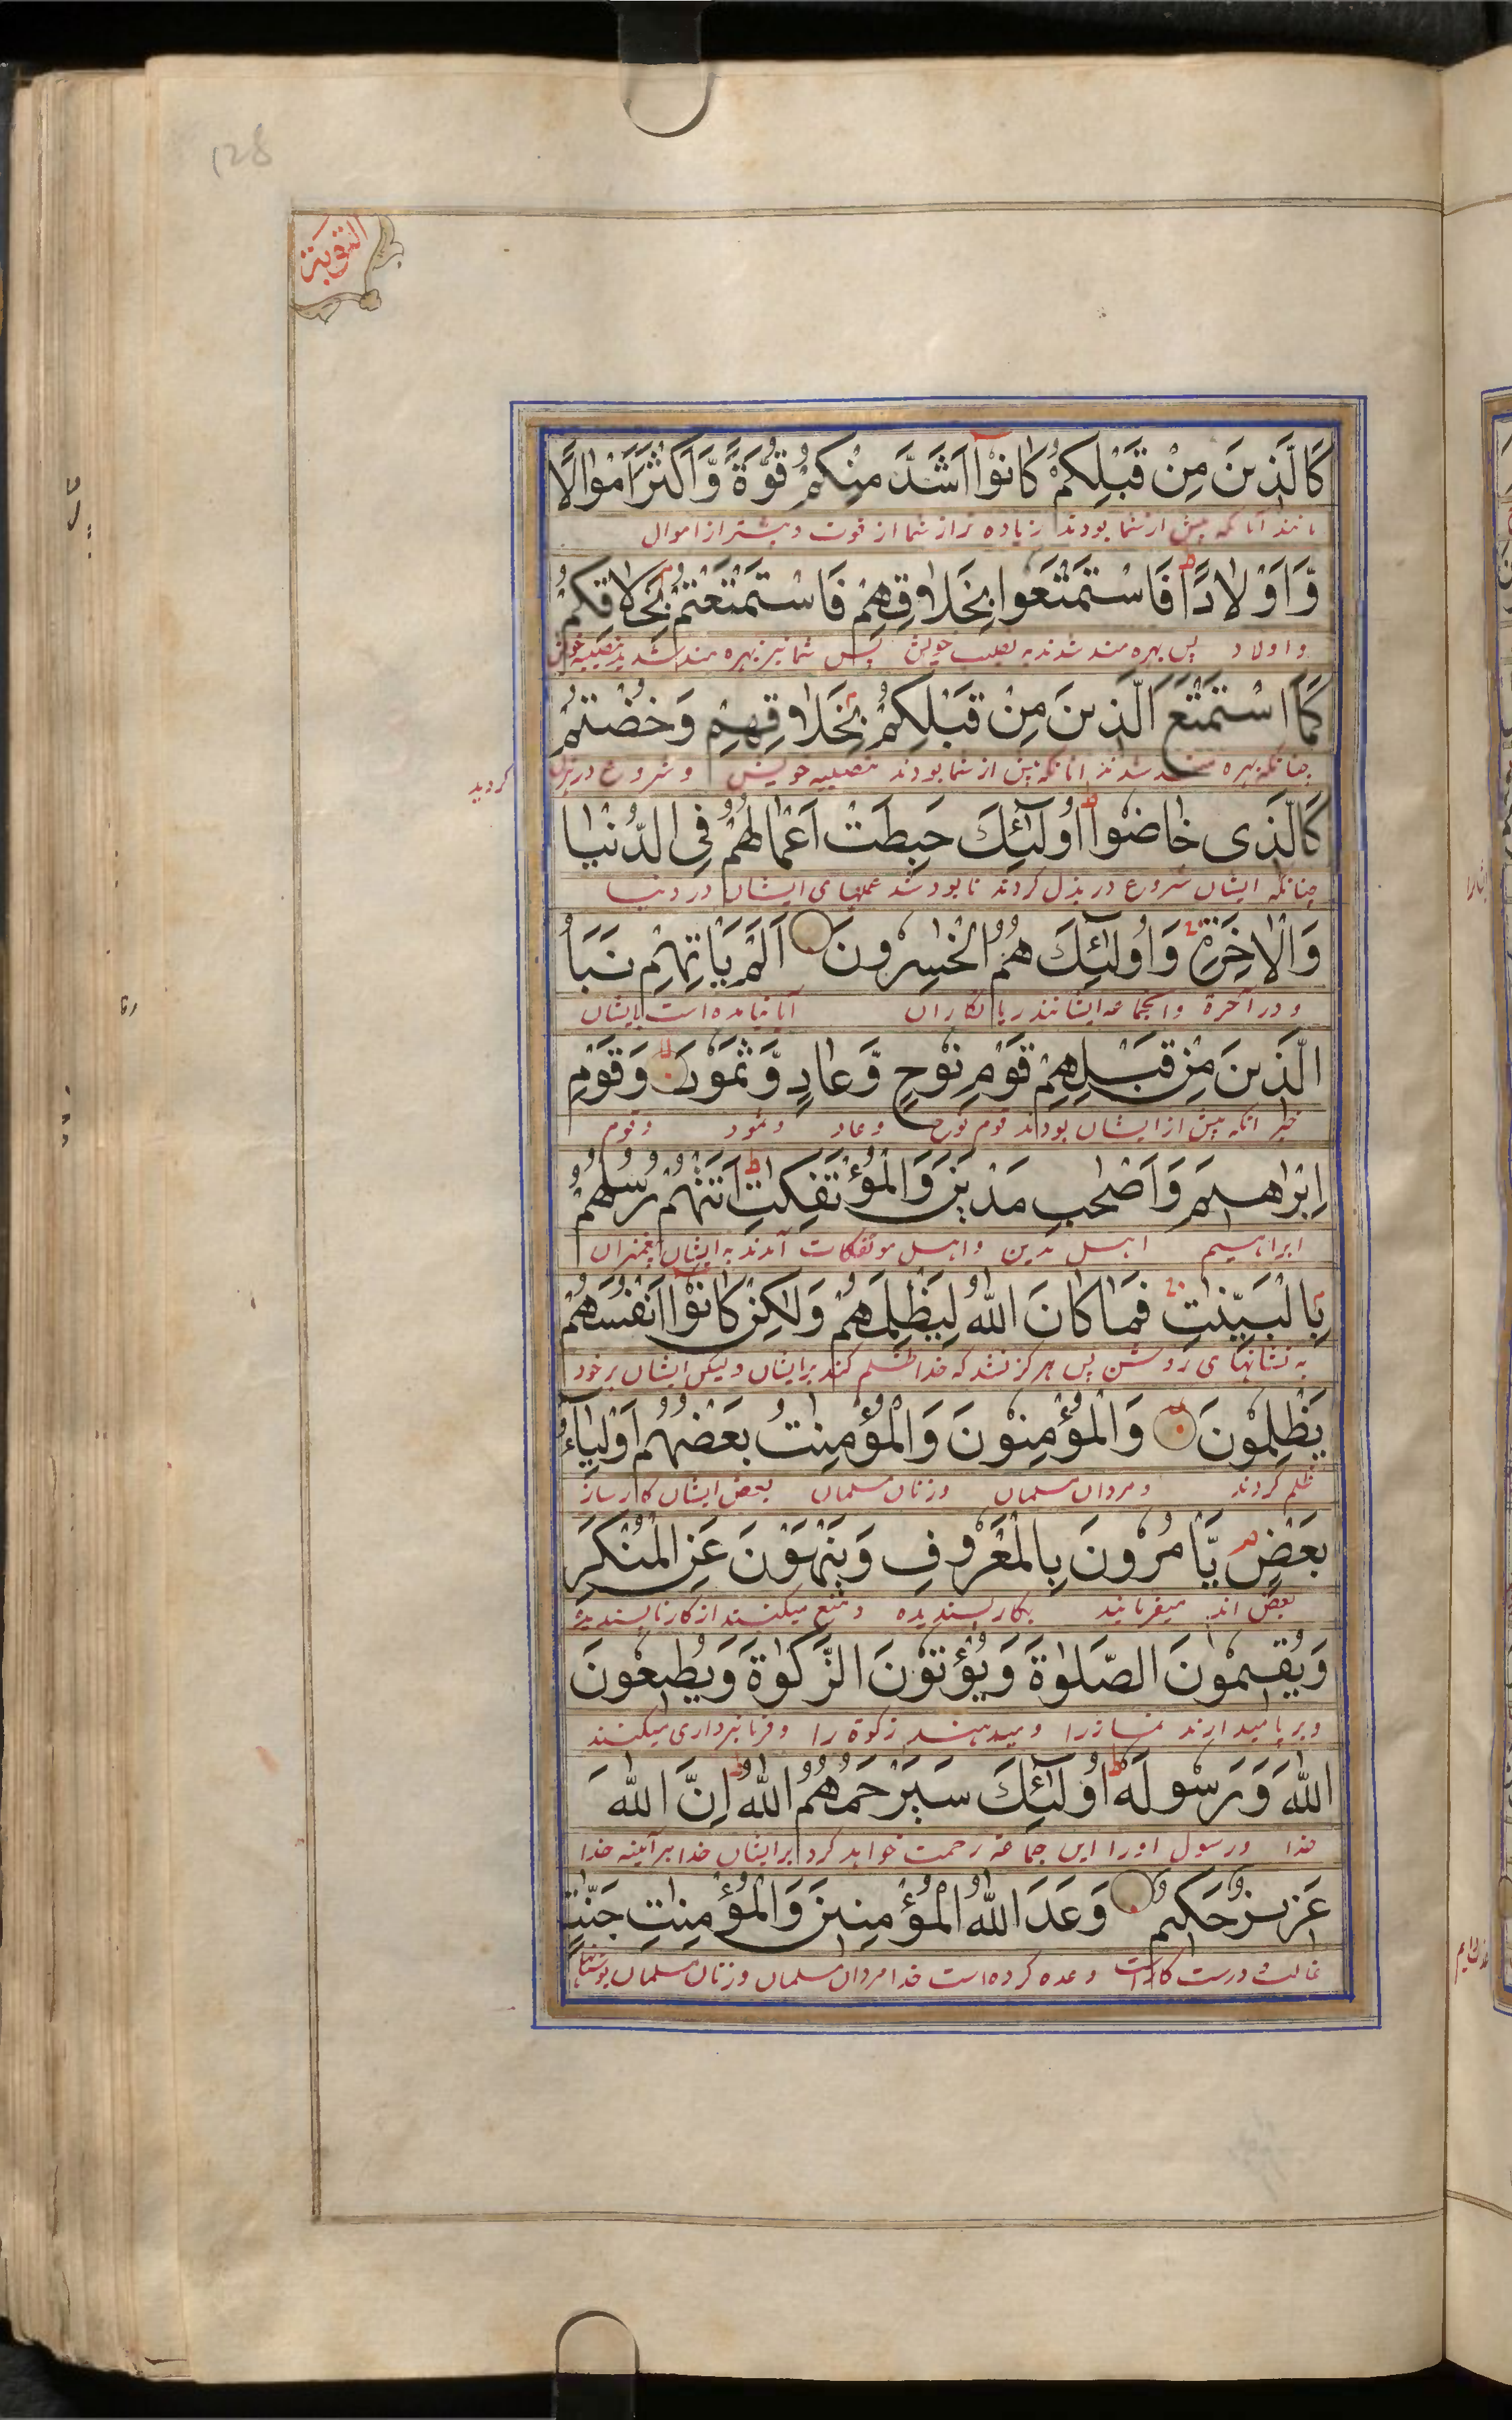 128
التوبة
كَالَّذِينَ مِنْ قَبْلِكُمْ كَانُوْا اَشَدَّ مِنْكُمْ قُوَّةً وَّاَكْثَرَ اَمْوَالًا
مانند آنانکه پیش از شما بودند زیاده تر از شما از قوت و بیشتر از اموال
وَّاَوْلَادًا ط فَاسْتَمْتَعُوا بِخَلَاقِهِمْ فَاسْتَمْتَعْتُمْ بِخَلَاقِكُمْ
و اولاد پس بهره مند شدند به نصیب خویش پس شما نیز بهره مند شدید بنصیبه خویش
كَمَا اسْتَمْتَعَ الَّذِينَ مِنْ قَبْلِكُمْ بِخَلَاقِهِمْ وَخُضْتُمْ
چنانکه بهره مند شدند انانکه پیش از شما بودند بنصیبه خویش و شروع در بذل
کردید
كَالَّذِى خَاضُوا ط اُولٰٓئِكَ حَبِطَتْ اَعْمَالُهُمْ فِى الدُّنْيَا
چنانکه ایشان شروع در بذل کردند نابود شد عملهای ایشان در دنیا
وَالْاٰخِرَةِ وَاُولٰٓئِكَ هُمُ الْخٰسِرُونَ اَلَمْ يَاْتِهِمْ نَبَاُ
و در آخرة و آنجماعه ایشانند زیانکاران آیا نیامده است بایشان
الَّذِينَ مِنْ قَبْلِهِمْ قَوْمِ نُوْحٍ وَّعَادٍ وَّثَمُوْدَ وَقَوْمِ
خبر انکه پیش از ایشان بودند قوم نوح و عاد و ثمود و قوم
اِبْرٰهِيمَ وَاَصْحٰبِ مَدْيَنَ وَالْمُؤْتَفِكٰتِ ط اَتَتْهُمْ رُسُلُهُمْ
ابراهیم اهل مدین و اهل موتفکات آمدند به ایشان پیغمبران
بِالْبَيِّنٰتِ فَمَا كَانَ اللّٰهُ لِيَظْلِمَهُمْ وَلٰكِنْ كَانُوْا اَنْفُسَهُمْ
به نشانهای روشن پس هرگز نشد که خدا ظلم کند بر ایشان و لیکن ایشان بر خود
يَظْلِمُوْنَ وَالْمُؤْمِنُوْنَ وَالْمُؤْمِنٰتُ بَعْضُهُمْ اَوْلِيَاءُ
ظلم کردند و مردان مسلمان و زنان مسلمان بعض ایشان کارساز
بَعْضٍ يَّاْمُرُوْنَ بِالْمَعْرُوفِ وَيَنْهَوْنَ عَنِ الْمُنْكَرِ
بعض اند میفرمایند بکار پسندیده و منع میکنند از کار ناپسندیده
وَيُقِيْمُوْنَ الصَّلٰوةَ وَيُؤْتُوْنَ الزَّكٰوةَ وَيُطِيعُوْنَ
و برپا میدارند نماز را و میدهند زکوة را و فرمانبرداری میکنند
اللّٰهَ وَرَسُولَهٗ ط اُولٰٓئِكَ سَيَرْحَمُهُمُ اللّٰهُ ط اِنَّ اللّٰهَ
خدا و رسول او را این جماعة رحمت خواهد کرد بر ایشان خدا هر آینه خدا
عَزِيزٌ حَكِيمٌ وَعَدَ اللّٰهُ الْمُؤْمِنِينَ وَالْمُؤْمِنٰتِ جَنّٰتٍ
غالب درست کار است وعده کرده است خدا مردان مسلمان و زنان مسلمان بوستانها